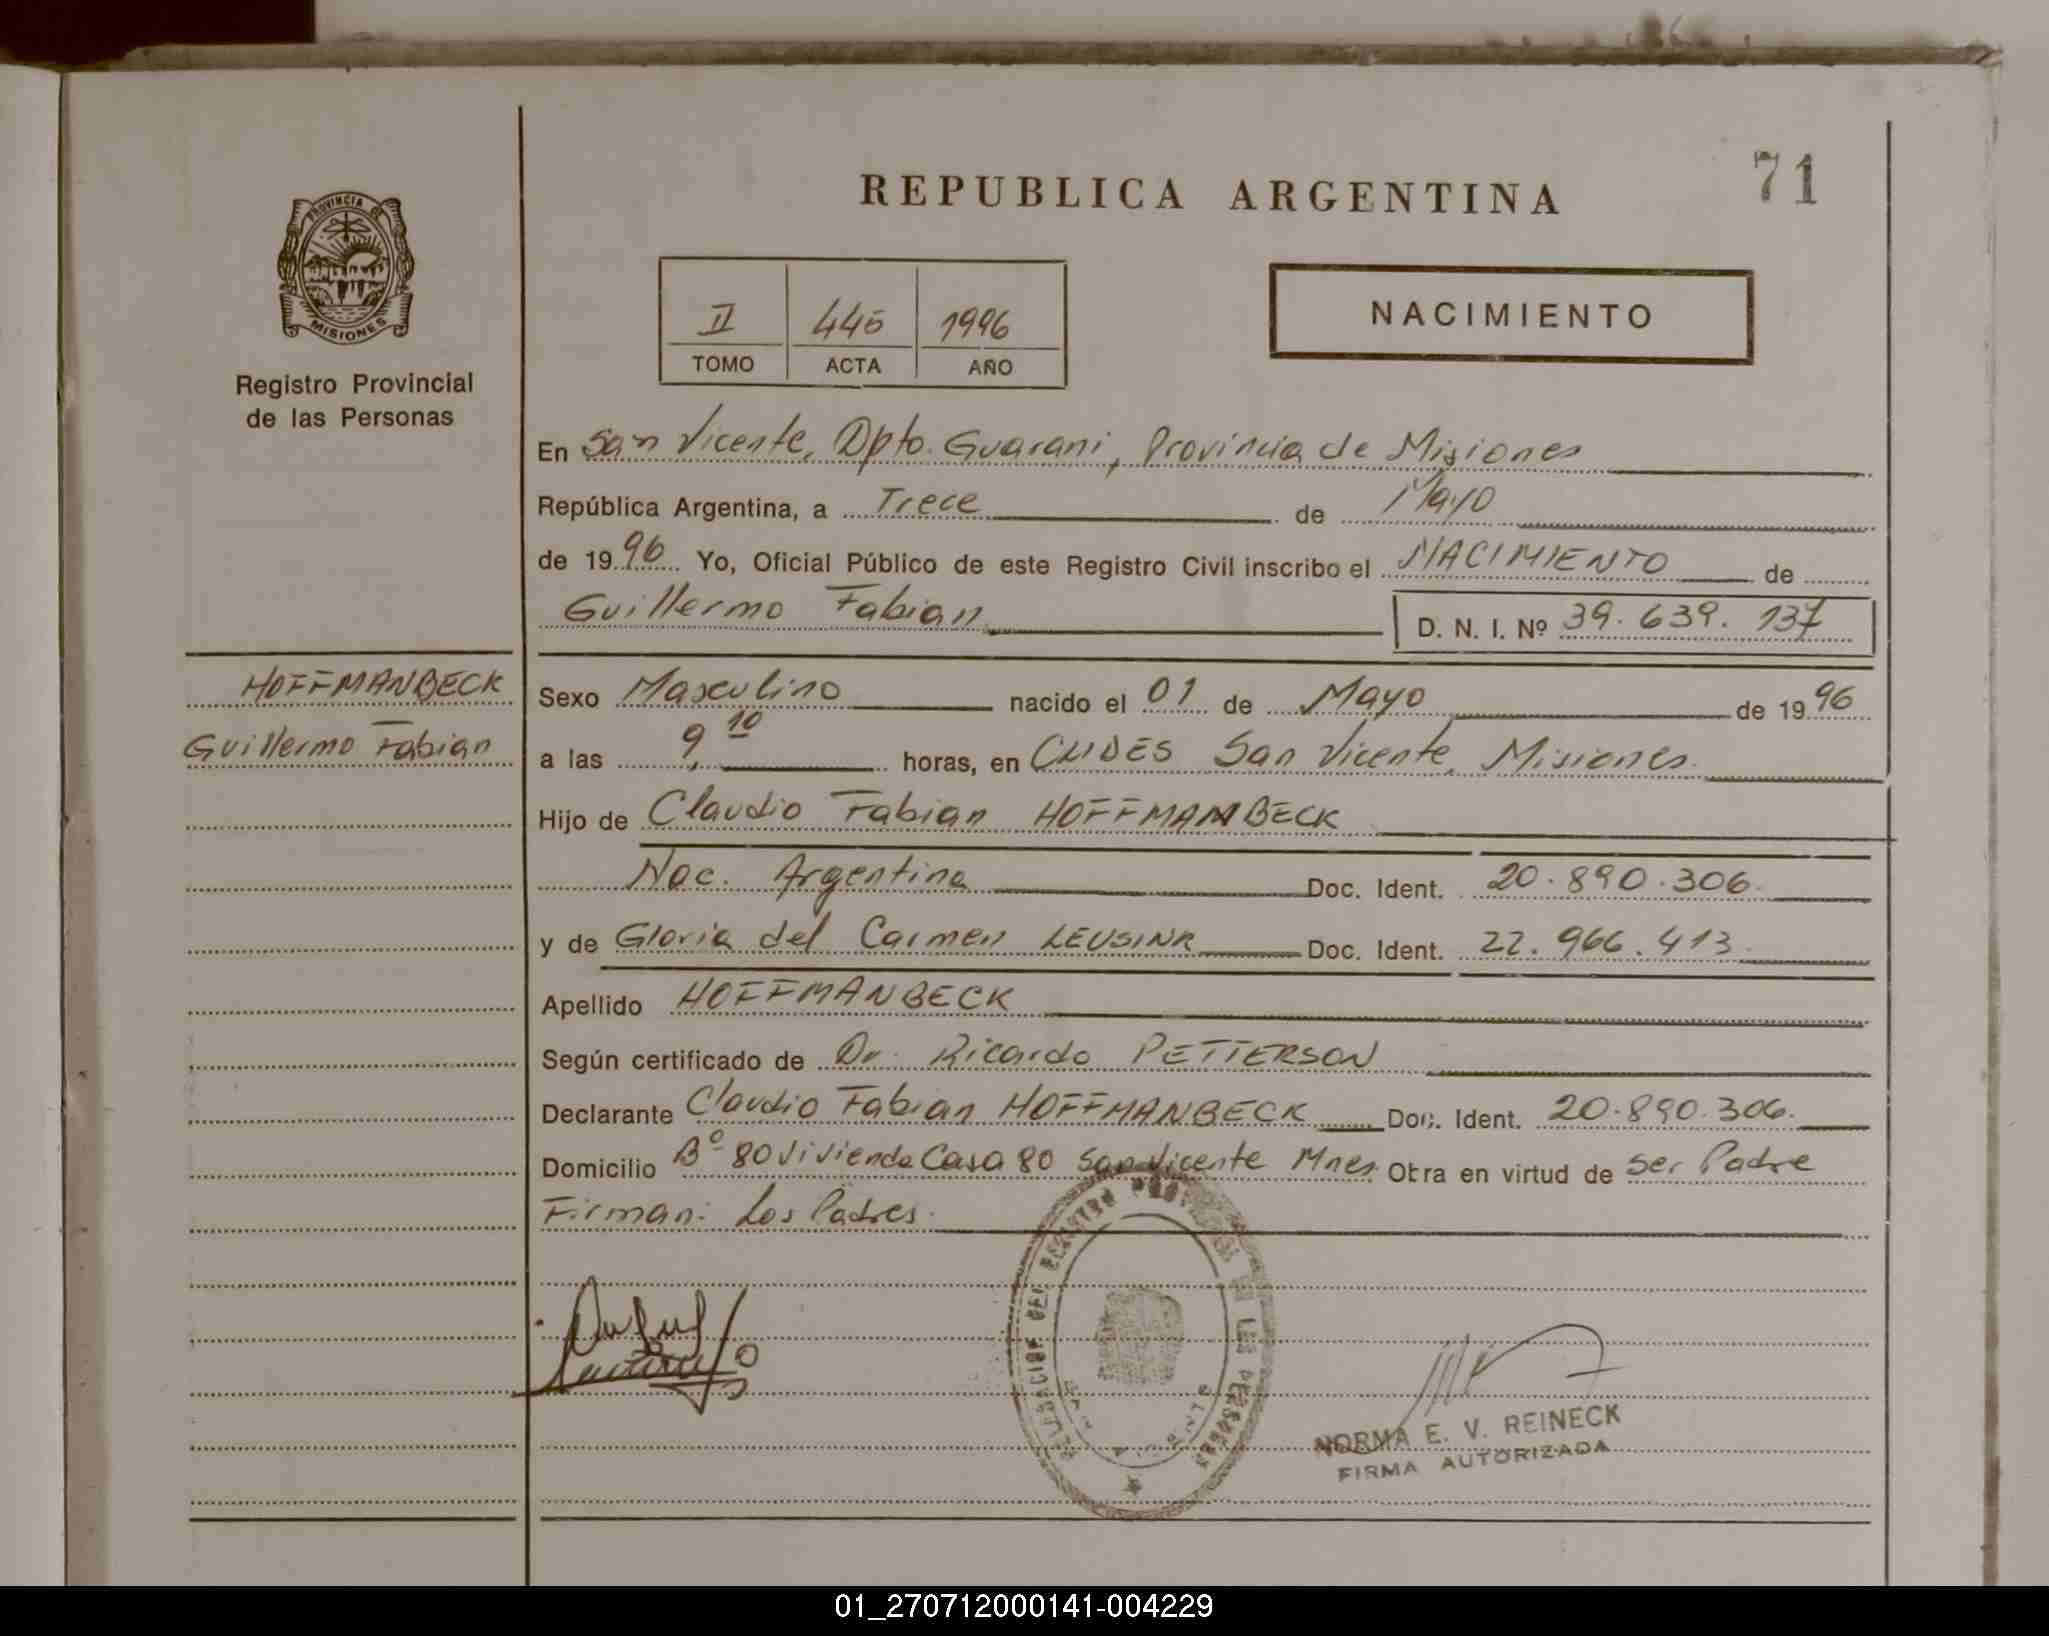 71
REPUBLICA ARGENTINA
PROVINCIA DE
MISIONES
Registro Provincial
de las Personas
II 445 1996
TOMO ACTA AÑO
NACIMIENTO
En San Vicente, Dpto. Guarani, Provincia de Misiones
República Argentina, a Trece de Mayo
de 1996 Yo, Oficial Público de este Registro Civil inscribo el NACIMIENTO de
Guillermo Fabian D. N. I. Nº 39.639.137
HOFFMANBECK
Guillermo Fabian
Sexo Masculino nacido el 01 de Mayo de 1996
a las 9,10 horas, en San Vicente, Misiones.
Hijo de Claudio Fabian HOFFMANBECK
Nac. Argentina Doc. Ident. 20.890.306.
y de Gloria del Carmen LEUSINK Doc. Ident. 22.966.413.
Apellido HOFFMANBECK
Según certificado de Dr. Ricardo PETTERSON
Declarante Claudio Fabian HOFFMANBECK Doc. Ident. 20.890.306.
Domicilio Bº 80 Vivienda Casa 80 San Vicente Mnes. Obra en virtud de ser Padre
Firman: Los Padres.
NORMA E. V. REINECK
FIRMA AUTORIZADA
01_270712000141-004229